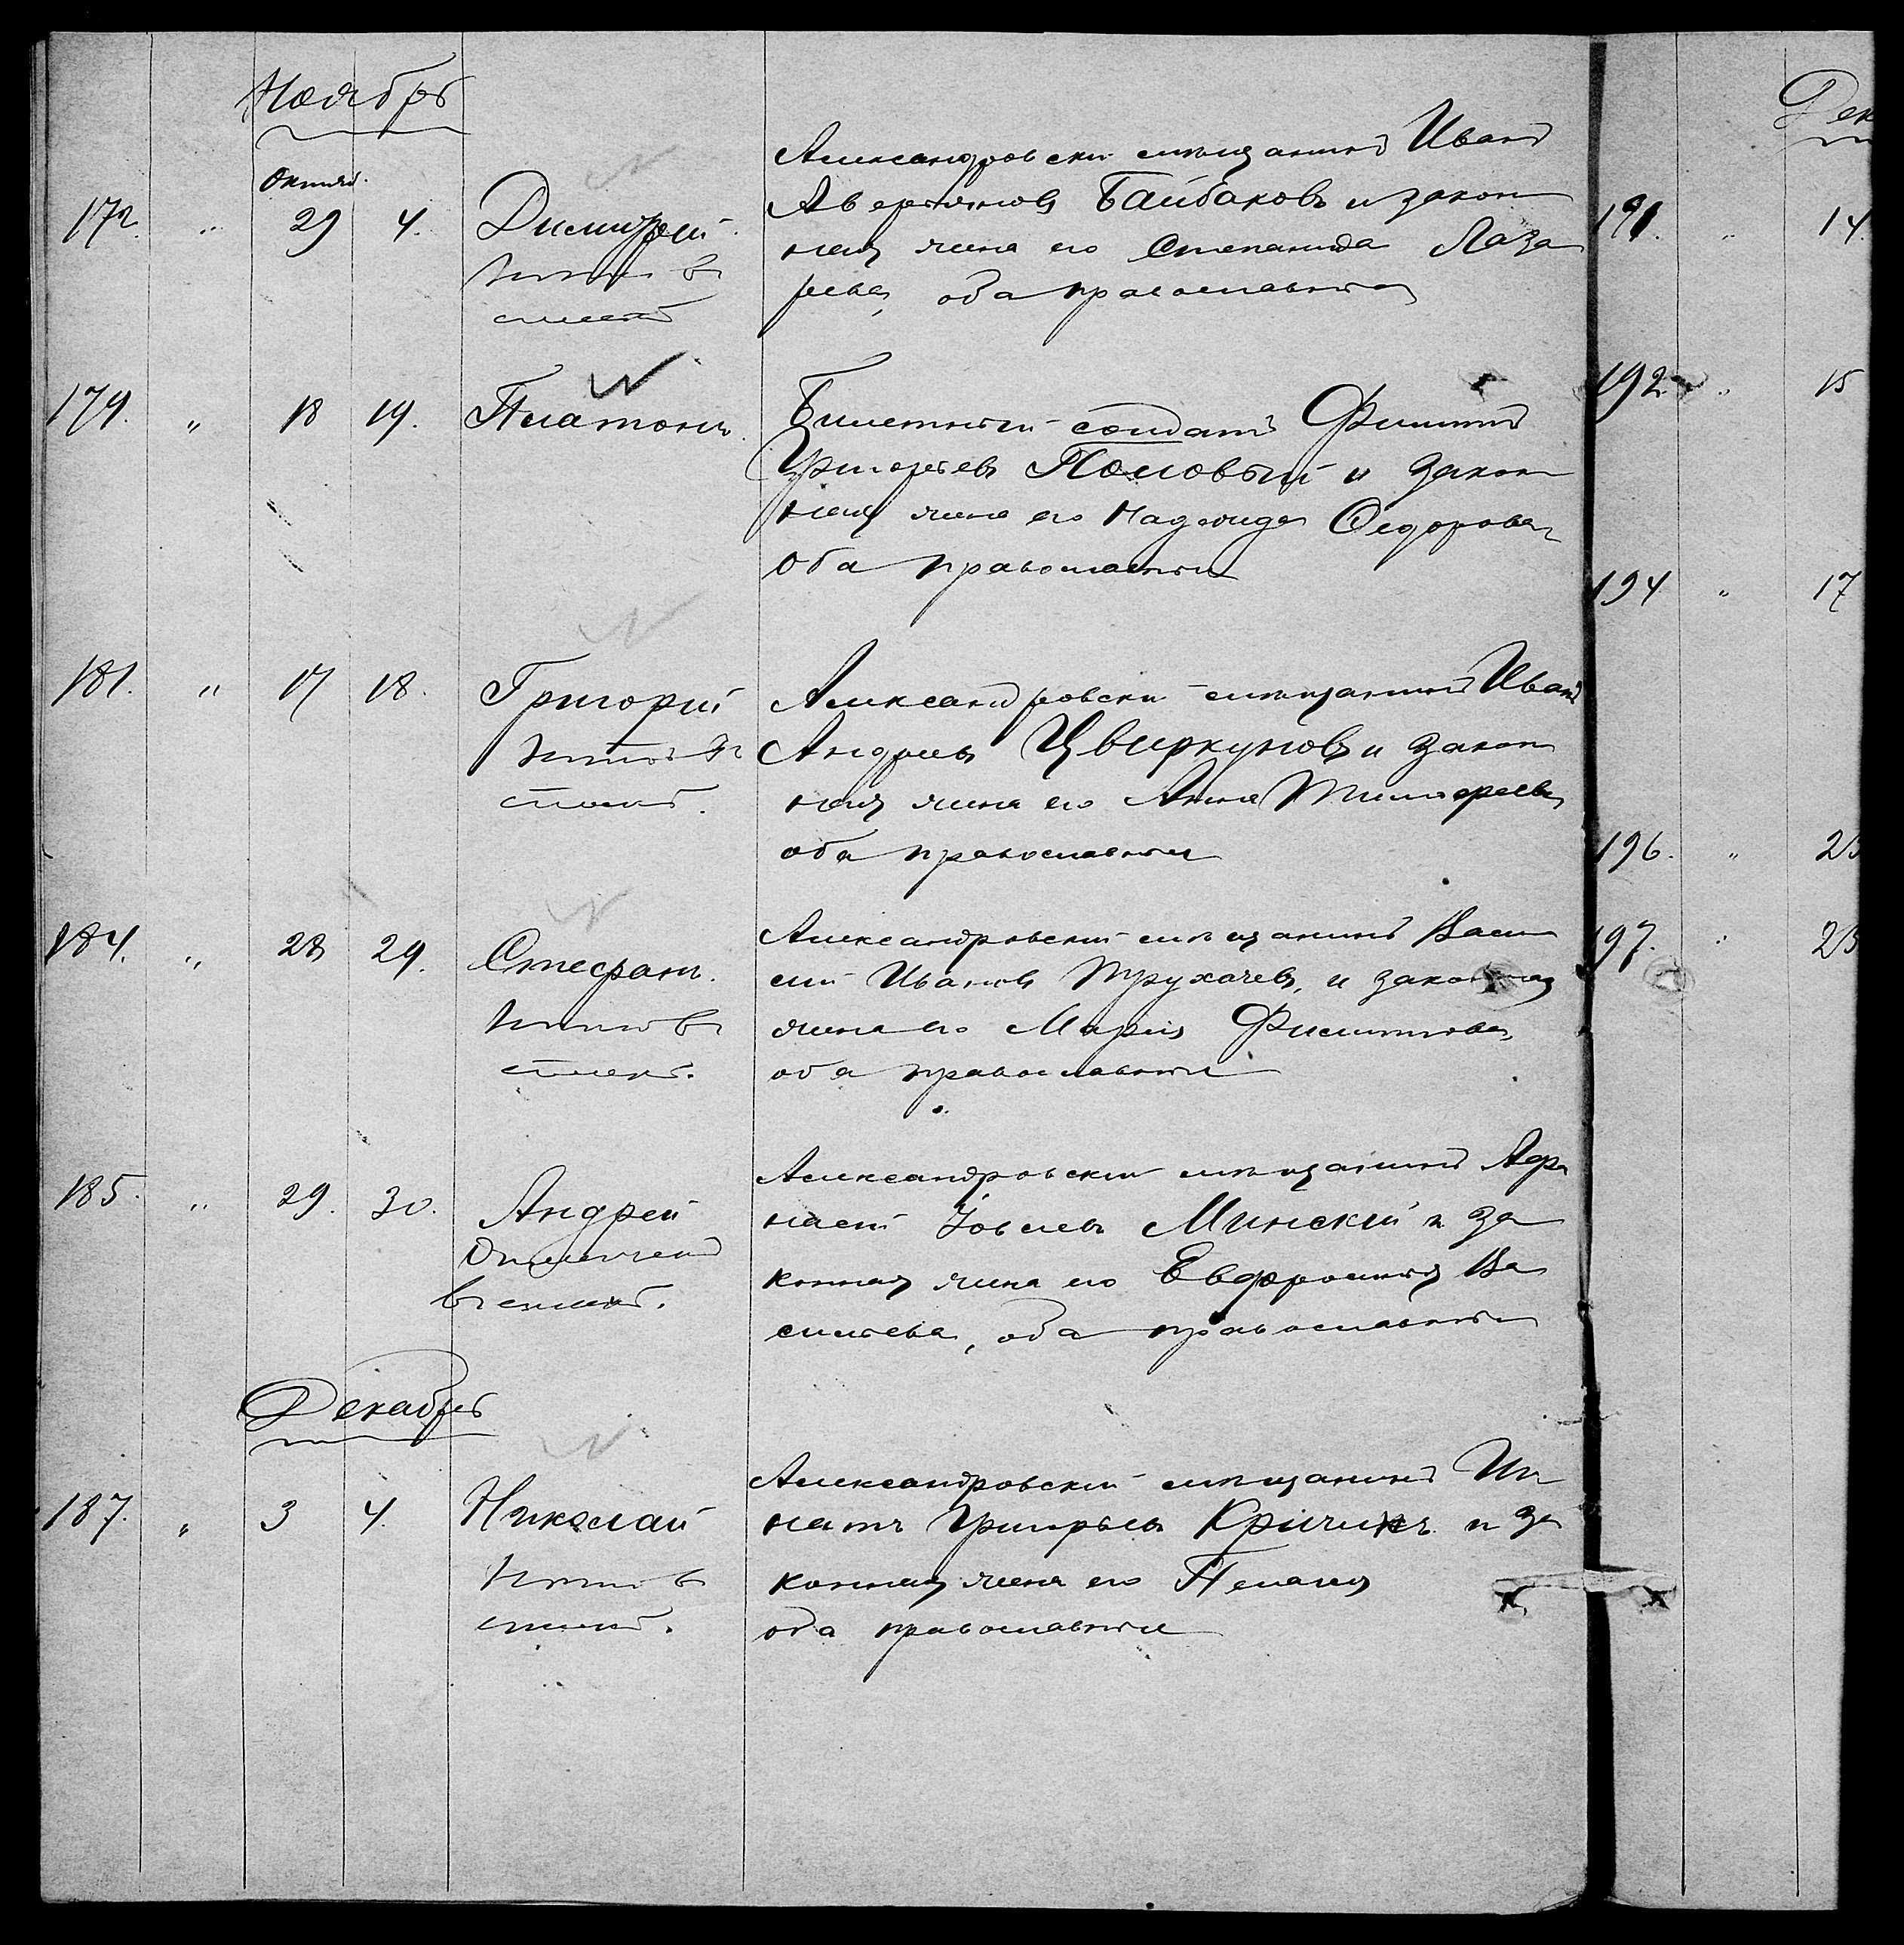 Ноябрь
Октяб.
172. " 29 4. Димитрій
Александровскій мѣщанинъ Иванъ
Аверьяновъ Байбаковъ и закон
ная жена его Степанида Лаза
рева, оба православные
179. " 18 19. Платонъ.
Билетный солдатъ Филиппъ
Григорьевъ Половый и закон
ная жена его Надежда Федорова
оба православные
181. " 17 18. Григорій
Александровскій мѣщанинъ Иванъ
Андреевъ Цвиркуновъ и закон
ная жена его Анна Тимофеева
оба православные
184. " 28 29. Стефанъ.
Александровскій мѣщанинъ Васи
лій Ивановъ Трухачевъ, и законная
жена его Марія Филиппова,
оба православные
185. " 29. 30. Андрей
Александровскій мѣщанинъ Афа
насій Минскій и за
конная жена его Евфросинія Ва
сильева, оба православные
Декабрь
187. " 3 4. Николай
Александровскій мѣщанинъ Иг
натъ Григорьевъ Кричинъ и за
конная жена его Пелагія
оба православные
Дек
191. " 14.
192. " 15
194 " 17
196. " 23
197. " 23